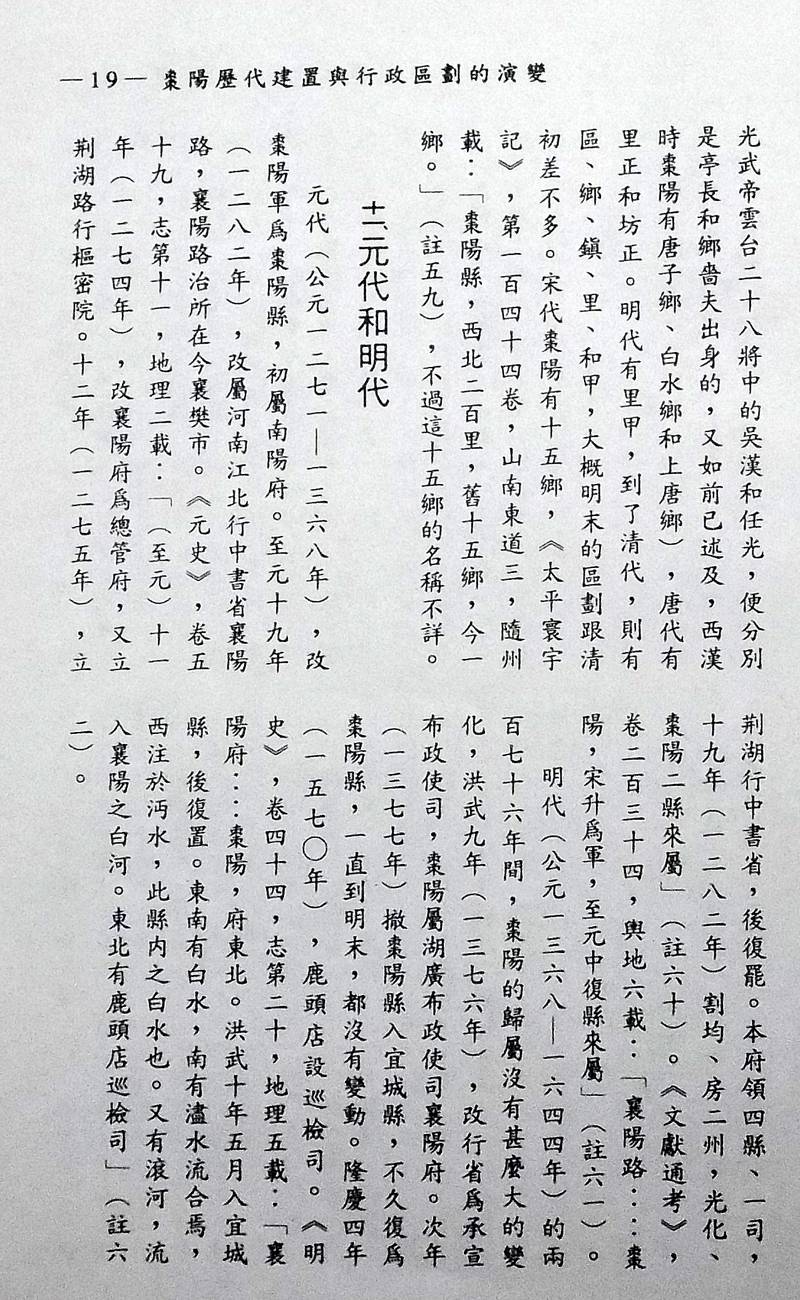 —19— 棗陽歷代建置與行政區劃的演變
光武帝雲台二十八將中的吳漢和任光，便分別
是亭長和鄉嗇夫出身的，又如前已述及，西漢
時棗陽有唐子鄉、白水鄉和上唐鄉），唐代有
里正和坊正。明代有里甲，到了清代，則有
區、鄉、鎮、里、和甲，大概明末的區劃跟清
初差不多。宋代棗陽有十五鄉，《太平寰宇
記》，第一百四十四卷，山南東道三，隨州
載：「棗陽縣，西北二百里，舊十五鄉，今一
鄉。」（註五九），不過這十五鄉的名稱不詳。
十二、元代和明代
元代（公元一二七一—一三六八年），改
棗陽軍爲棗陽縣，初屬南陽府。至元十九年
（一二八二年），改屬河南江北行中書省襄陽
路，襄陽路治所在今襄樊市。《元史》，卷五
十九，志第十一，地理二載：「（至元）十一
年（一二七四年），改襄陽府爲總管府，又立
荆湖路行樞密院。十二年（一二七五年），立
荆湖行中書省，後復罷。本府領四縣、一司，
十九年（一二八二年）割均、房二州，光化、
棗陽二縣來屬」（註六十）。《文獻通考》，
卷二百三十四，輿地六載：「襄陽路：：棗
陽，宋升爲軍，至元中復縣來屬」（註六一）。
明代（公元一三六八—一六四四年）的兩
百七十六年間，棗陽的歸屬沒有甚麼大的變
化，洪武九年（一三七六年），改行省爲承宣
布政使司，棗陽屬湖廣布政使司襄陽府。次年
（一三七七年）撤棗陽縣入宜城縣，不久復爲
棗陽縣，一直到明末，都沒有變動。隆慶四年
（一五七〇年），鹿頭店設巡檢司。《明
史》，卷四十四，志第二十，地理五載：「襄
陽府：：棗陽，府東北。洪武十年五月入宜城
縣，後復置。東南有白水，南有瀘水流合焉，
西注於沔水，此縣內之白水也。又有滾河，流
入襄陽之白河。東北有鹿頭店巡檢司」（註六
二）。